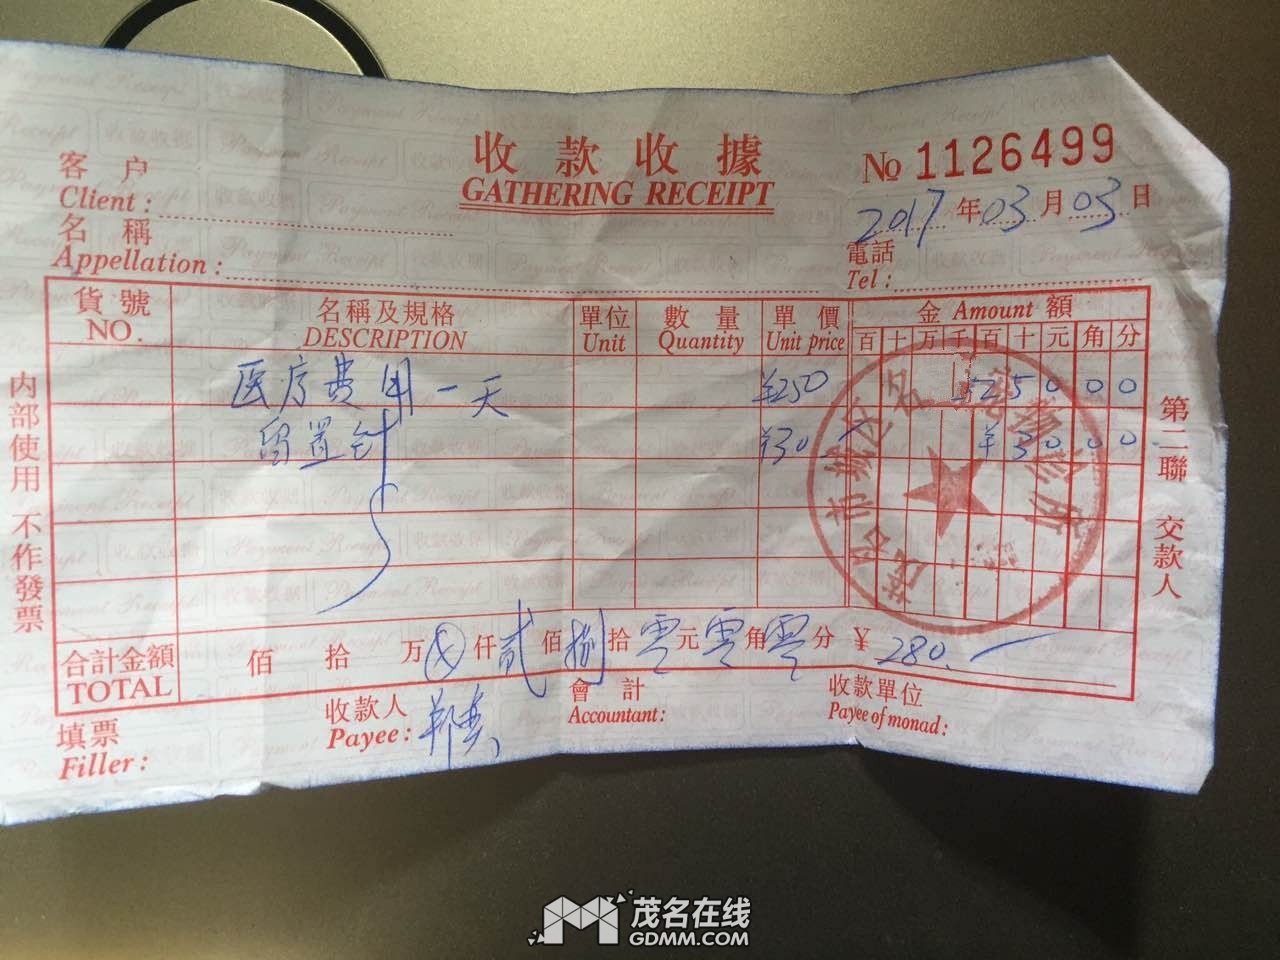 收款收據
GATHERING RECEIPT
No 1126499
2017年03月03日
客户
Client:
名稱
Appellation:
電話
Tel:
貨號 名稱及規格 單位 數量 單價 金 Amount 額
NO. DESCRIPTION Unit Quantity Unit price 百 十 万 千 百 十 元 角 分
医疗费用一天 ¥250 ¥25000
留置针 ¥30 ¥3000
合計金額 佰 拾 万 仟 贰 佰 捌 拾 零 元 零 角 零 分 ¥ 280.—
TOTAL
填票
Filler:
收款人
Payee:
會計
Accountant:
收款單位
Payee of monad:
内部使用 不作發票
第二聯 交款人
茂名在线
GDMM.COM